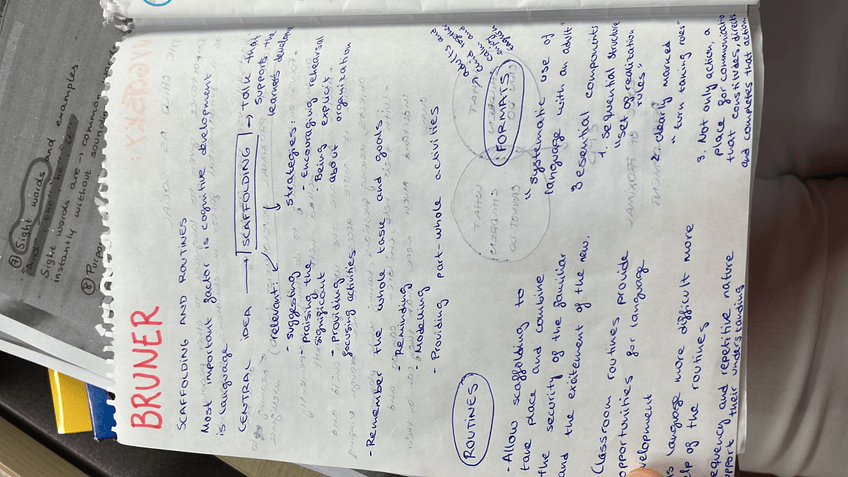 BRUNER
SCAFFOLDING AND ROUTINES
Most important factor is cognitive development
is language
CENTRAL IDEA → SCAFFOLDING → Talk that
supports the
learners develome
relevant:
strategies:
- suggesting
- praising the
significant
- providing
focusing activities
- Encouraging rehearsal
- Being explicit
about
organization
- Remember the whole task and goals
- Reminding
- Modelling
- Providing part-whole activities
ROUTINES
- Allow scaffolding to
take place and combine
the security of the familiar
and the excitement of the new.
Classroom routines provide
opportunities for language
evelopment
is language more difficult more
elp of the routines
equency and repetitive nature
upport their understanding
FORMATS
adults and
child together
"systematic use of
language with an adult"
3 esential components
1. Sequential structure
"set of realization
rules"
2. clearly marked
"turn taking roles"
3. Not only action, a
place for communicatio
that constitutes, directs
and completes that action
Sight words and examples
Sight words are → common
instantly without sounding